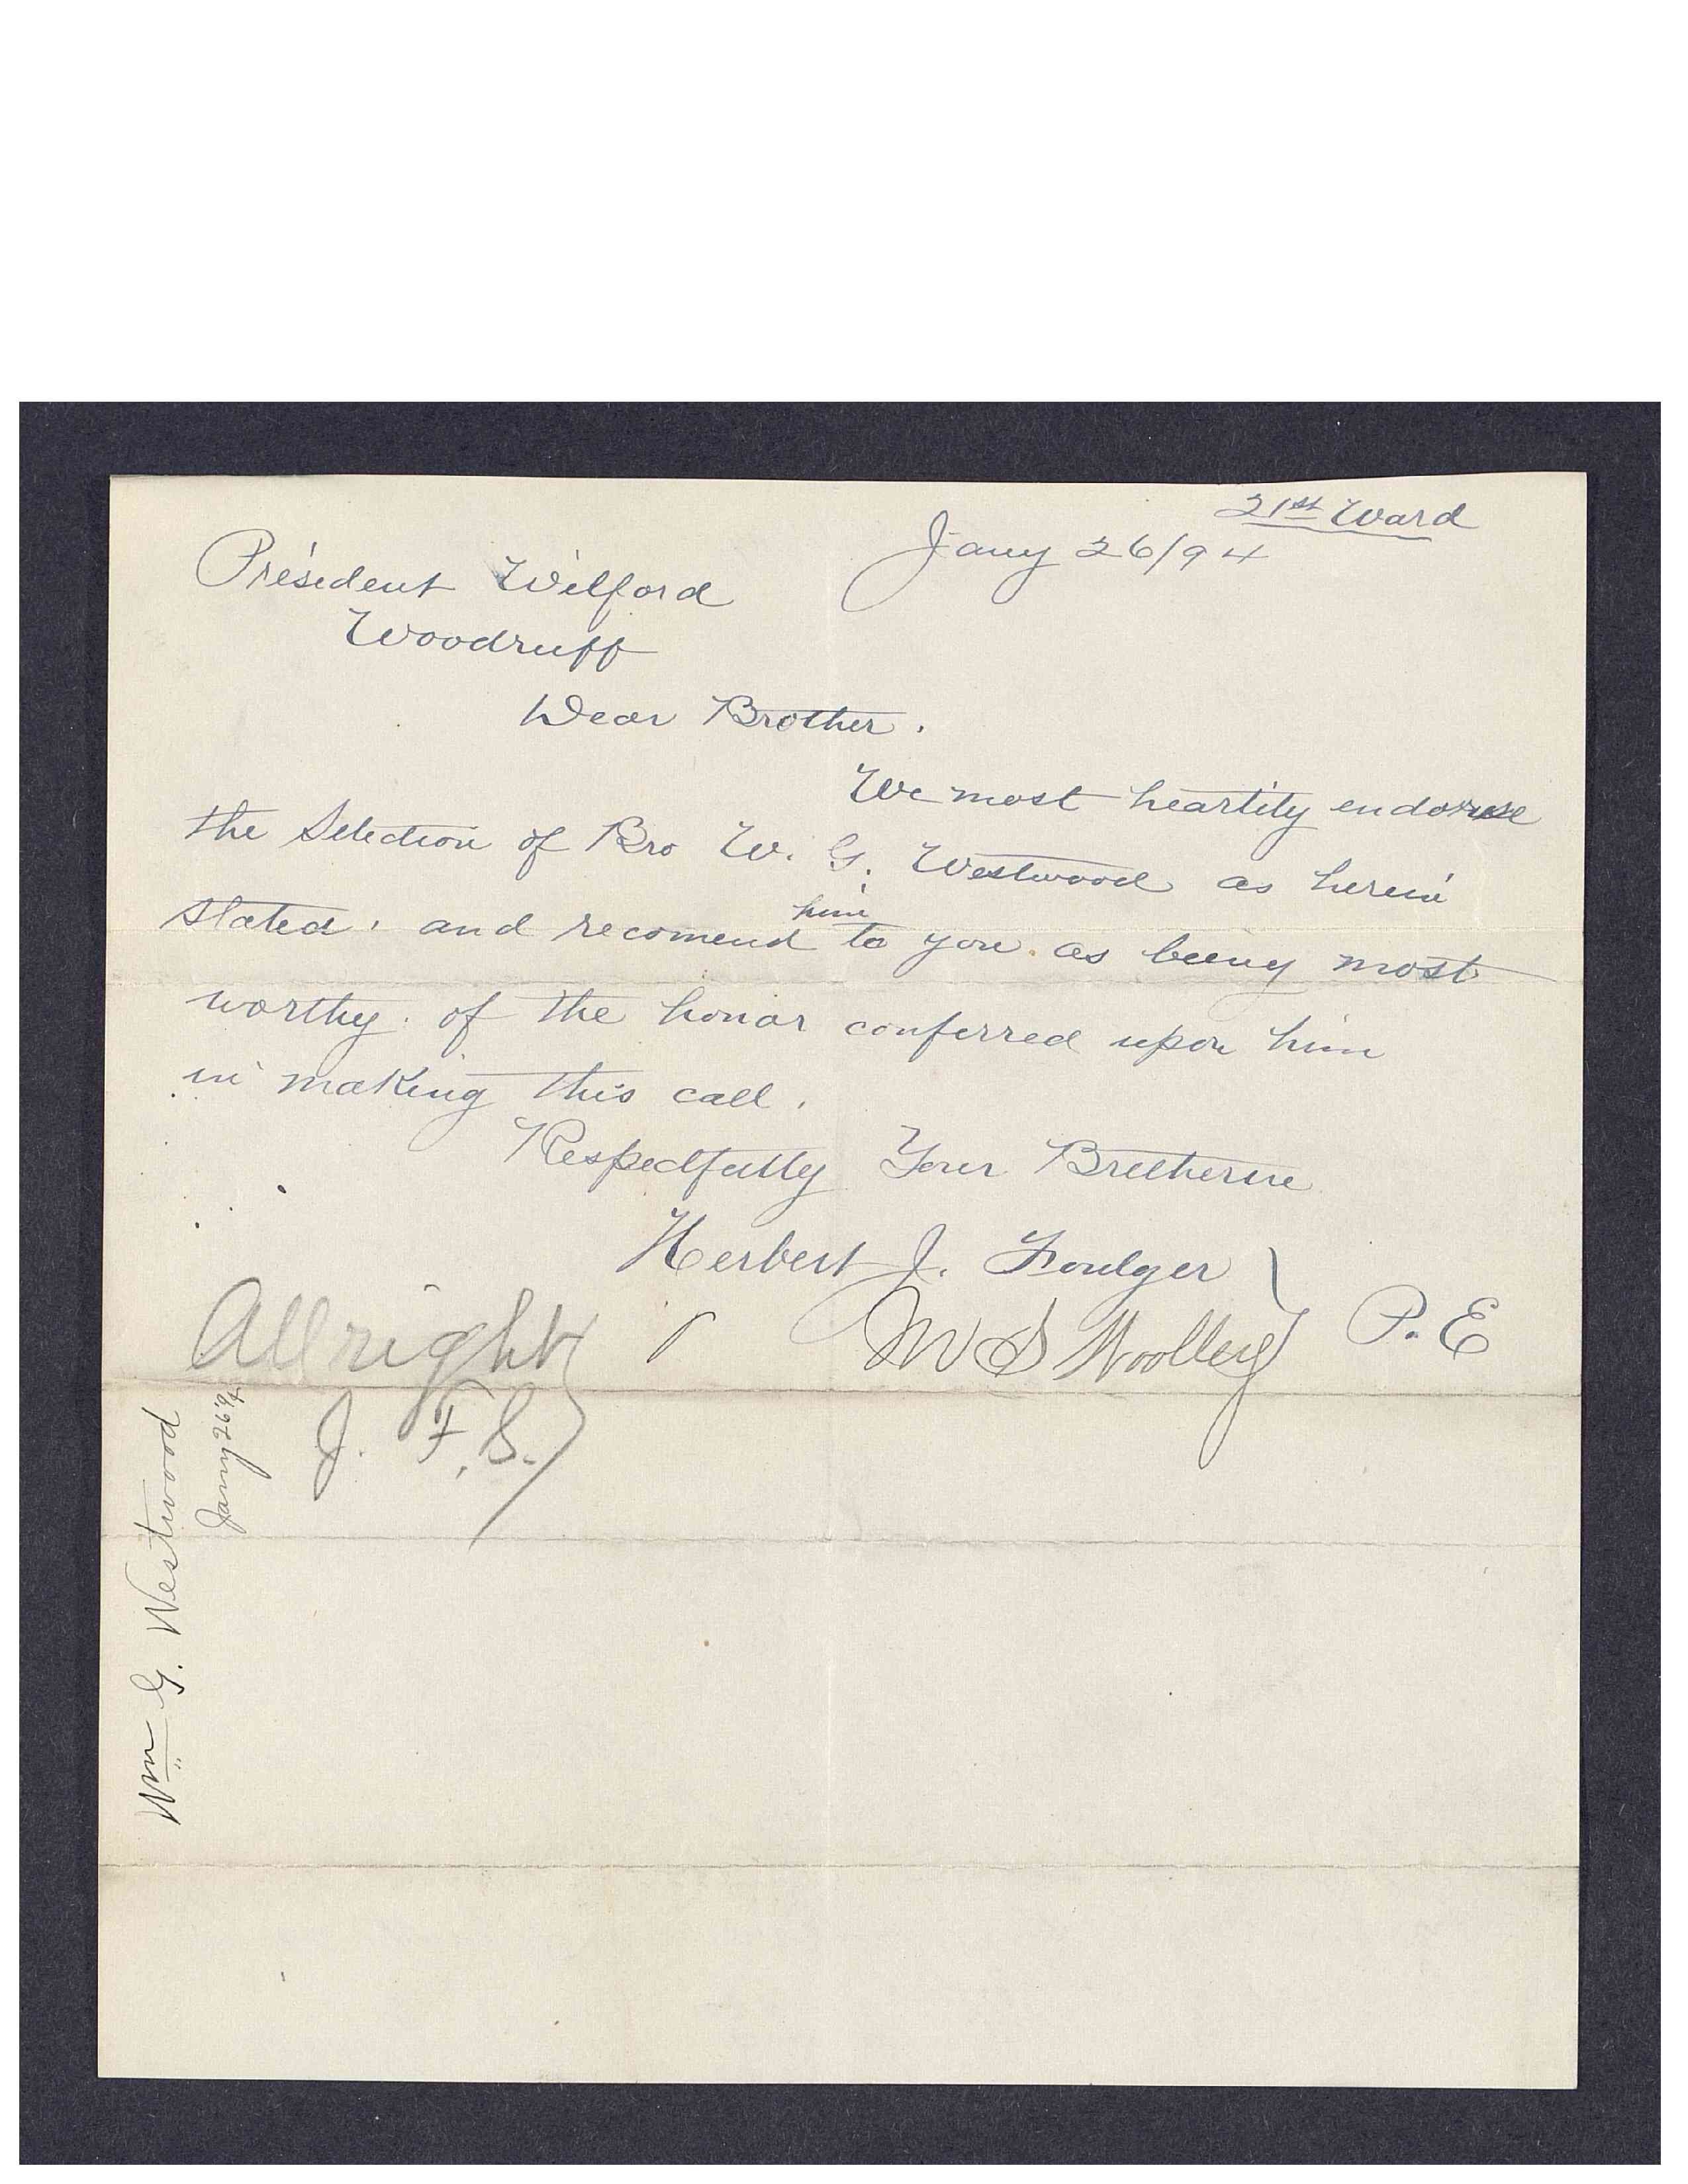 21st Ward
Jany 26/94
President Wilford
Woodruff
Dear Brother.
We most heartily endorse
the Selection of Bro W. G. Westwood as herein
stated. and recomend him to you. as being most
worthy. of the honor conferred upon him
in making this call.
Respectfully Your Bretherine
Herbert J. Foulger
M S Woolley P. E
All right
J. F. S.
Wm G. Westwood
Jany 26 94